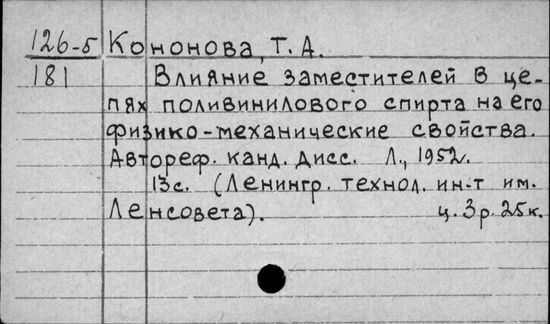 126-5 Кононова, Т. А.
181 Влияние заместителей в це-
пях поливинилового спирта на его
физико-механические свойства.
Автореф. канд. дисс. Л., 1952.
13с. (Ленингр. технол. ин-т им.
Ленсовета). ц. 3 р. 25к.